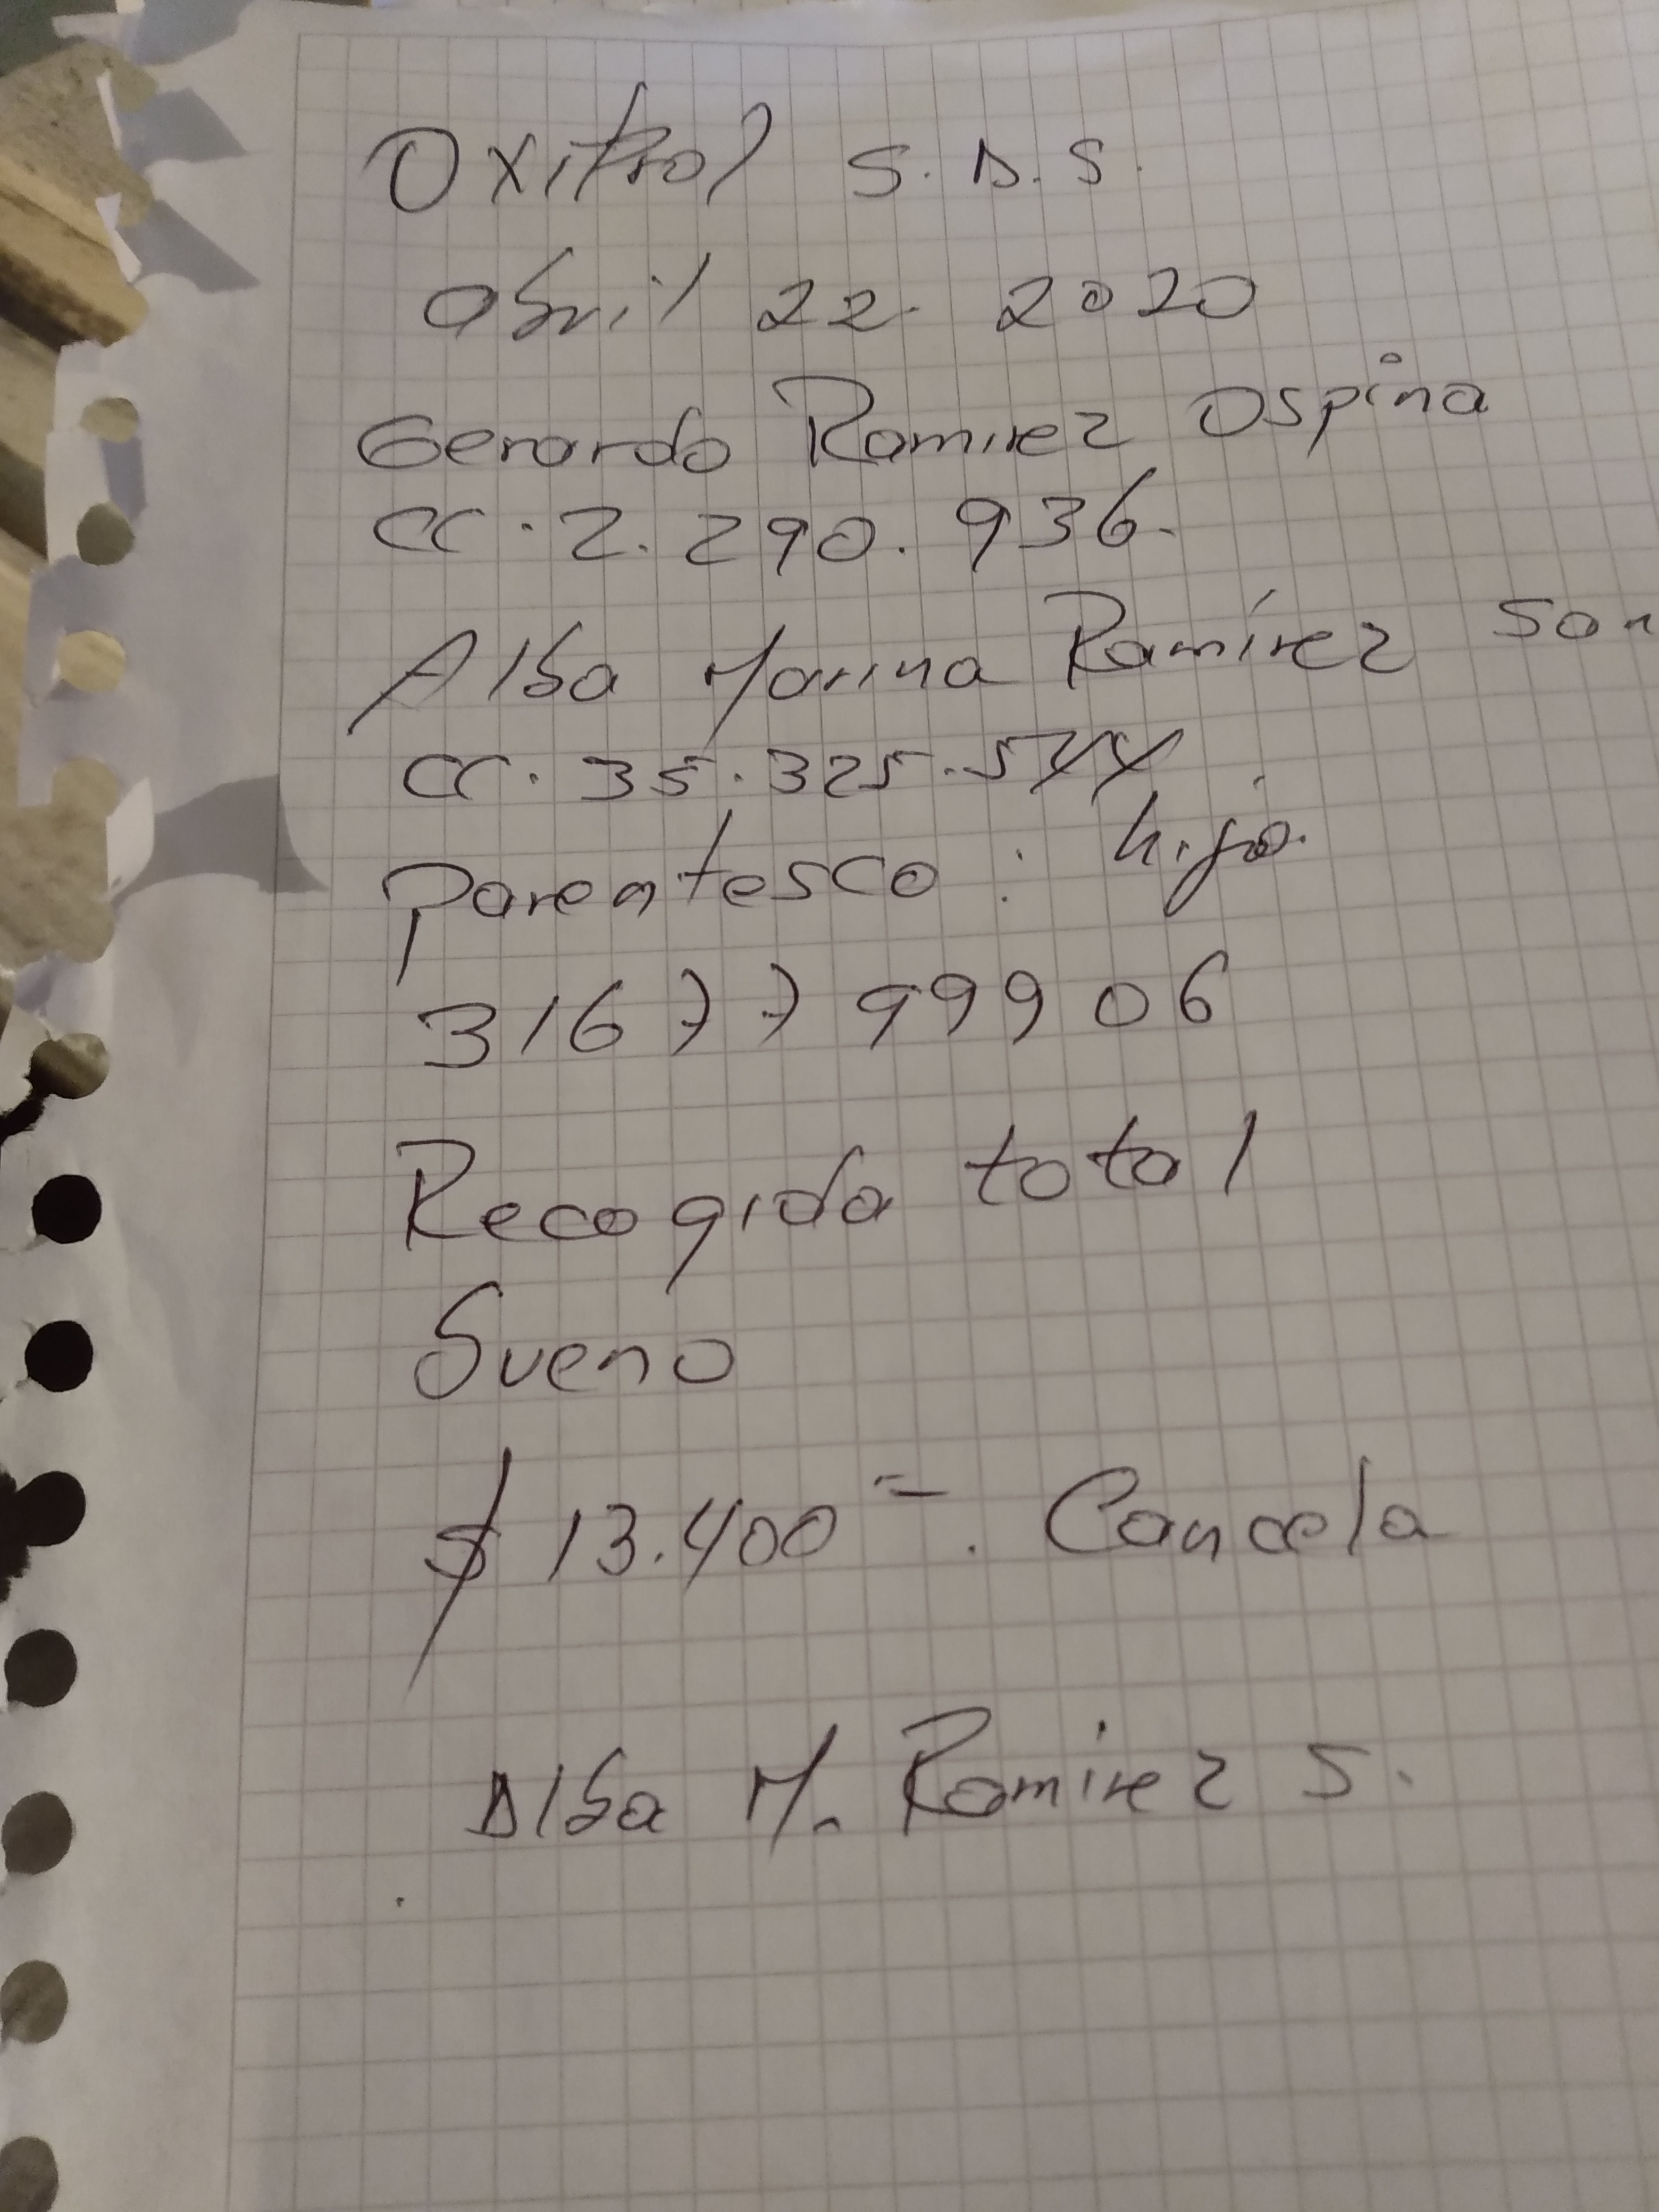 Oxitrol S.A.S.
Abril 22. 2020
Gerardo Ramirez Ospina
CC. 2. 290. 936.
Alba Marina Ramírez San
CC. 35. 325. 544
Parentesco : hija.
316 77 999 06
Recogida total
Sueno
$ 13.400 =. Cancela
Alba M. Ramirez S.